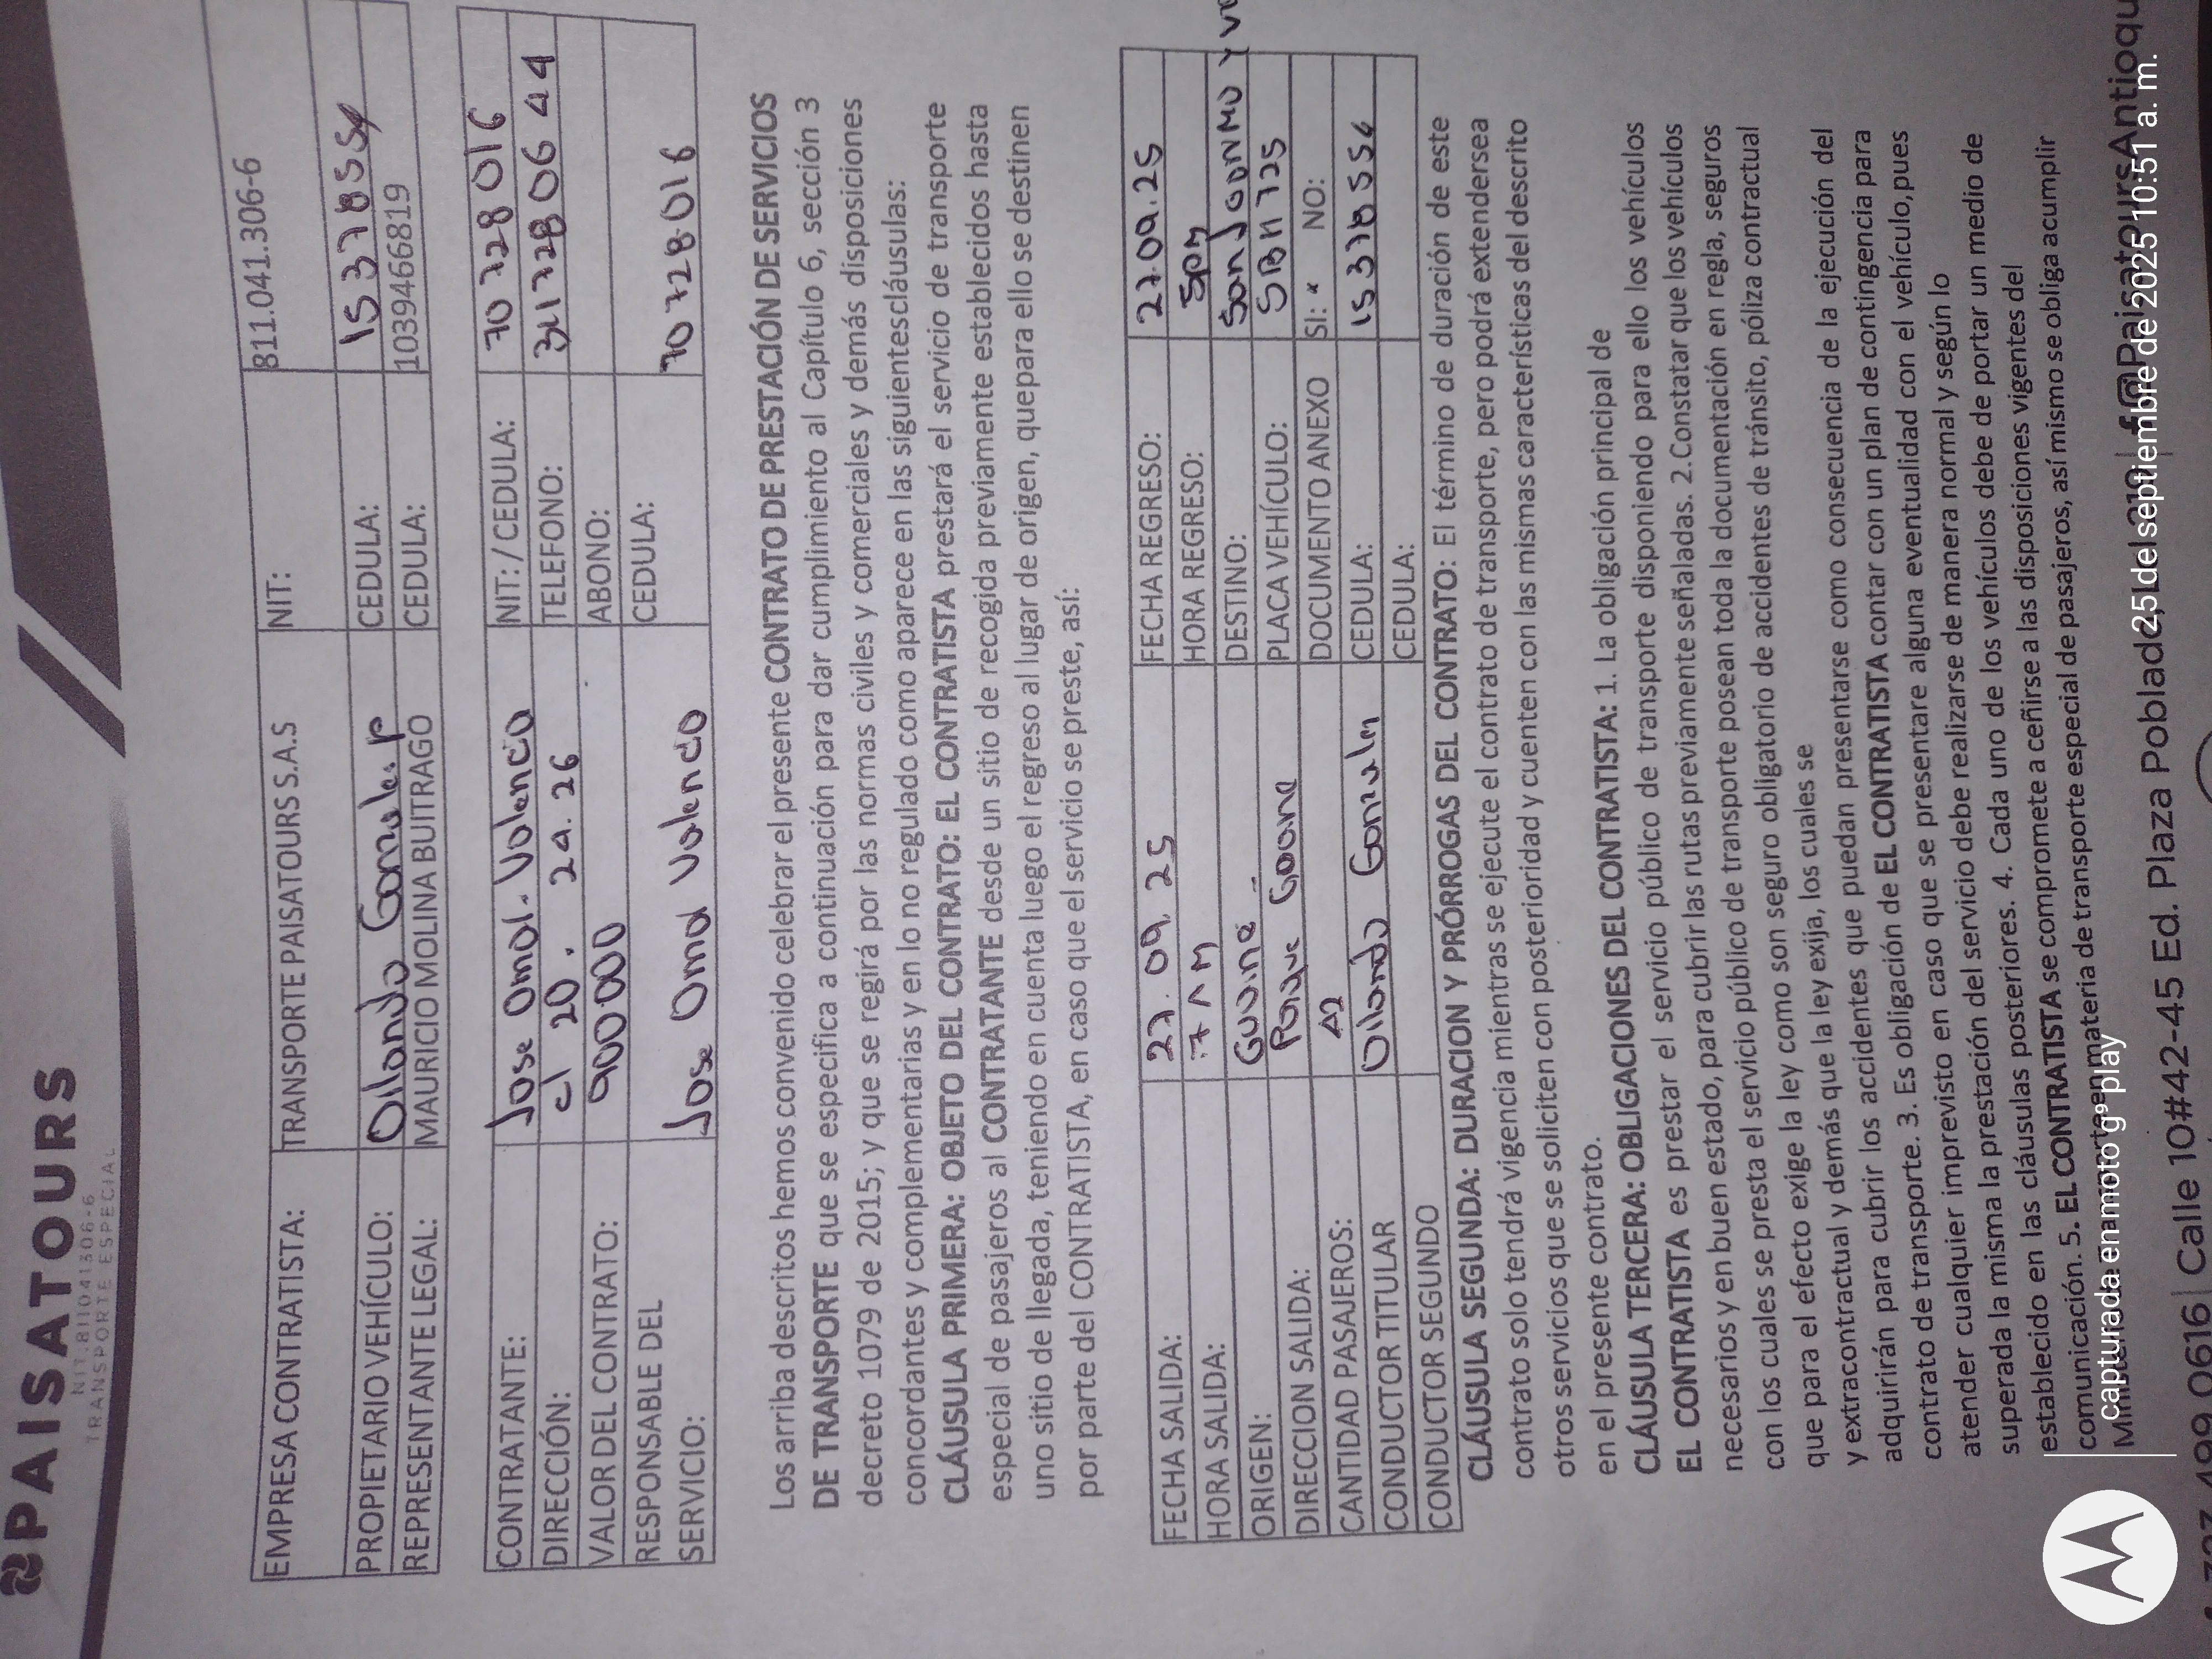 PAISATOURS
NIT. 811041306-6
TRANSPORTE ESPECIAL
EMPRESA CONTRATISTA: TRANSPORTE PAISATOURS S.A.S NIT: 811.041.306-6
PROPIETARIO VEHÍCULO: CEDULA:
REPRESENTANTE LEGAL: MAURICIO MOLINA BUITRAGO CEDULA: 1039466819
CONTRATANTE: Jose Omar Valencia NIT: / CEDULA: 70 728 016
DIRECCIÓN: cl 20. 2a. 26 TELEFONO: 311 728 06 44
VALOR DEL CONTRATO: 900.000 ABONO:
RESPONSABLE DEL
SERVICIO: Jose Omar Valencia CEDULA: 70 728.016
Los arriba descritos hemos convenido celebrar el presente CONTRATO DE PRESTACIÓN DE SERVICIOS
DE TRANSPORTE que se especifica a continuación para dar cumplimiento al Capítulo 6, sección 3
decreto 1079 de 2015; y que se regirá por las normas civiles y comerciales y demás disposiciones
concordantes y complementarias y en lo no regulado como aparece en las siguientescláusulas:
CLÁUSULA PRIMERA: OBJETO DEL CONTRATO: EL CONTRATISTA prestará el servicio de transporte
especial de pasajeros al CONTRATANTE desde un sitio de recogida previamente establecidos hasta
uno sitio de llegada, teniendo en cuenta luego el regreso al lugar de origen, quepara ello se destinen
por parte del CONTRATISTA, en caso que el servicio se preste, así:
FECHA SALIDA: 27. 09. 25 FECHA REGRESO: 27.09.25
HORA SALIDA: 7 AM HORA REGRESO: 5PM
ORIGEN: DESTINO:
DIRECCION SALIDA: Parque PLACA VEHÍCULO: 725
CANTIDAD PASAJEROS: DOCUMENTO ANEXO SI: x NO:
CONDUCTOR TITULAR CEDULA: 15 378 554
CONDUCTOR SEGUNDO CEDULA:
CLÁUSULA SEGUNDA: DURACION Y PRÓRROGAS DEL CONTRATO: El término de duración de este
contrato solo tendrá vigencia mientras se ejecute el contrato de transporte, pero podrá extendersea
otros servicios que se soliciten con posterioridad y cuenten con las mismas características del descrito
en el presente contrato.
CLÁUSULA TERCERA: OBLIGACIONES DEL CONTRATISTA: 1. La obligación principal de
EL CONTRATISTA es prestar el servicio público de transporte disponiendo para ello los vehículos
necesarios y en buen estado, para cubrir las rutas previamente señaladas. 2.Constatar que los vehículos
con los cuales se presta el servicio público de transporte posean toda la documentación en regla, seguros
que para el efecto exige la ley como son seguro obligatorio de accidentes de tránsito, póliza contractual
y extracontractual y demás que la ley exija, los cuales se
adquirirán para cubrir los accidentes que puedan presentarse como consecuencia de la ejecución del
contrato de transporte. 3. Es obligación de EL CONTRATISTA contar con un plan de contingencia para
atender cualquier imprevisto en caso que se presentare alguna eventualidad con el vehículo,pues
superada la misma la prestación del servicio debe realizarse de manera normal y según lo
establecido en las cláusulas posteriores. 4. Cada uno de los vehículos debe de portar un medio de
comunicación. 5. EL CONTRATISTA se compromete a ceñirse a las disposiciones vigentes del
en materia de transporte especial de pasajeros, así mismo se obliga acumplir
499 0616 | Calle 10#42-45 Ed. Plaza Poblado, @PaisatoursAntioqu
capturada en moto g⁹ play
25 de septiembre de 2025 10:51 a. m.